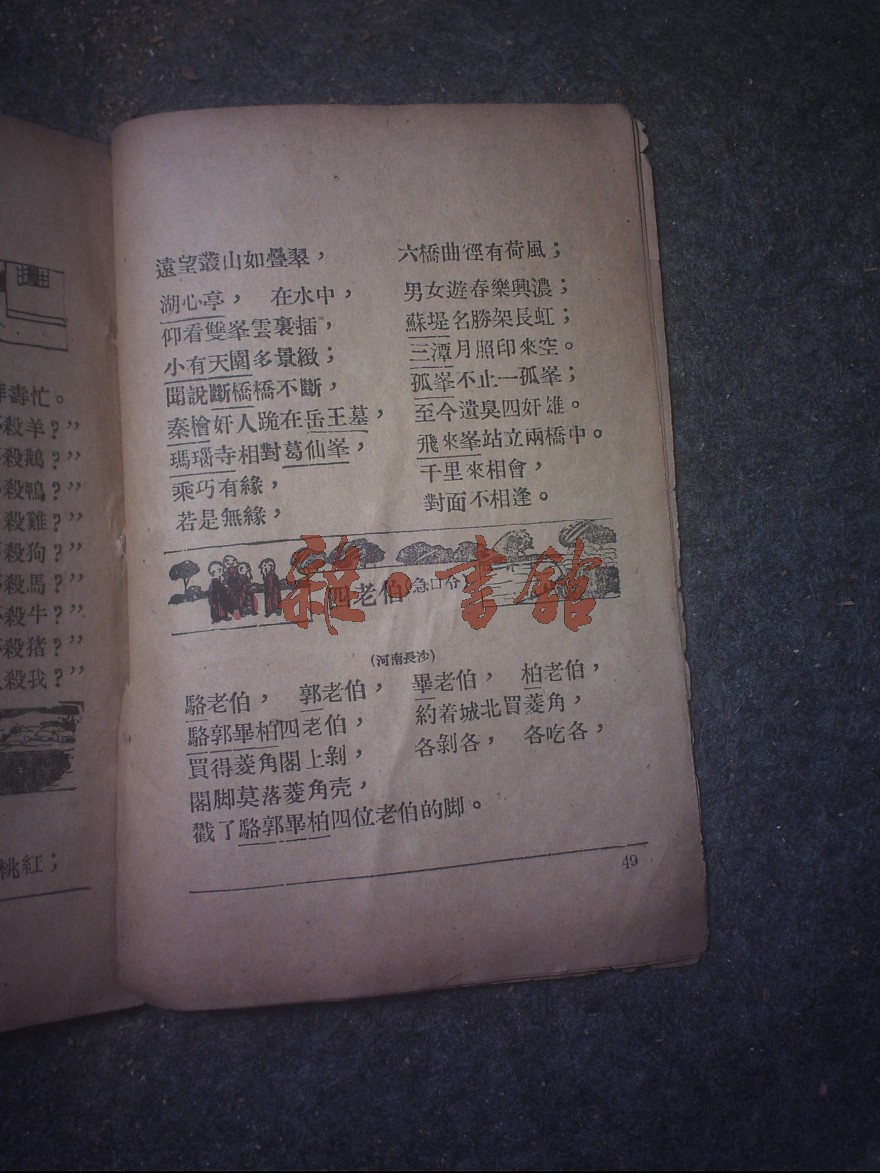 祥壽忙。
殺羊？”
殺鵝？”
殺鴨？”
殺雞？”
殺狗？”
殺馬？”
殺牛？”
殺猪？”
殺我？”
桃紅；
遠望叢山如疊翠， 六橋曲徑有荷風；
湖心亭， 在水中， 男女遊春樂興濃；
仰看雙峯雲裏插， 蘇堤名勝架長虹；
小有天園多景緻； 三潭月照印來空。
聞說斷橋橋不斷， 孤峯不止一孤峯；
秦檜奸人跪在岳王墓， 至今遺臭四奸雄。
瑪瑙寺相對葛仙峯， 飛來峯站立兩橋中。
乘巧有緣， 千里來相會，
若是無緣， 對面不相逢。
雜·書館
四老伯(急口分)
(河南長沙)
駱老伯， 郭老伯， 畢老伯， 柏老伯，
駱郭畢柏四老伯， 約着城北買菱角，
買得菱角閣上剝， 各剝各， 各吃各，
閣脚莫落菱角壳，
戳了駱郭畢柏四位老伯的脚。
49